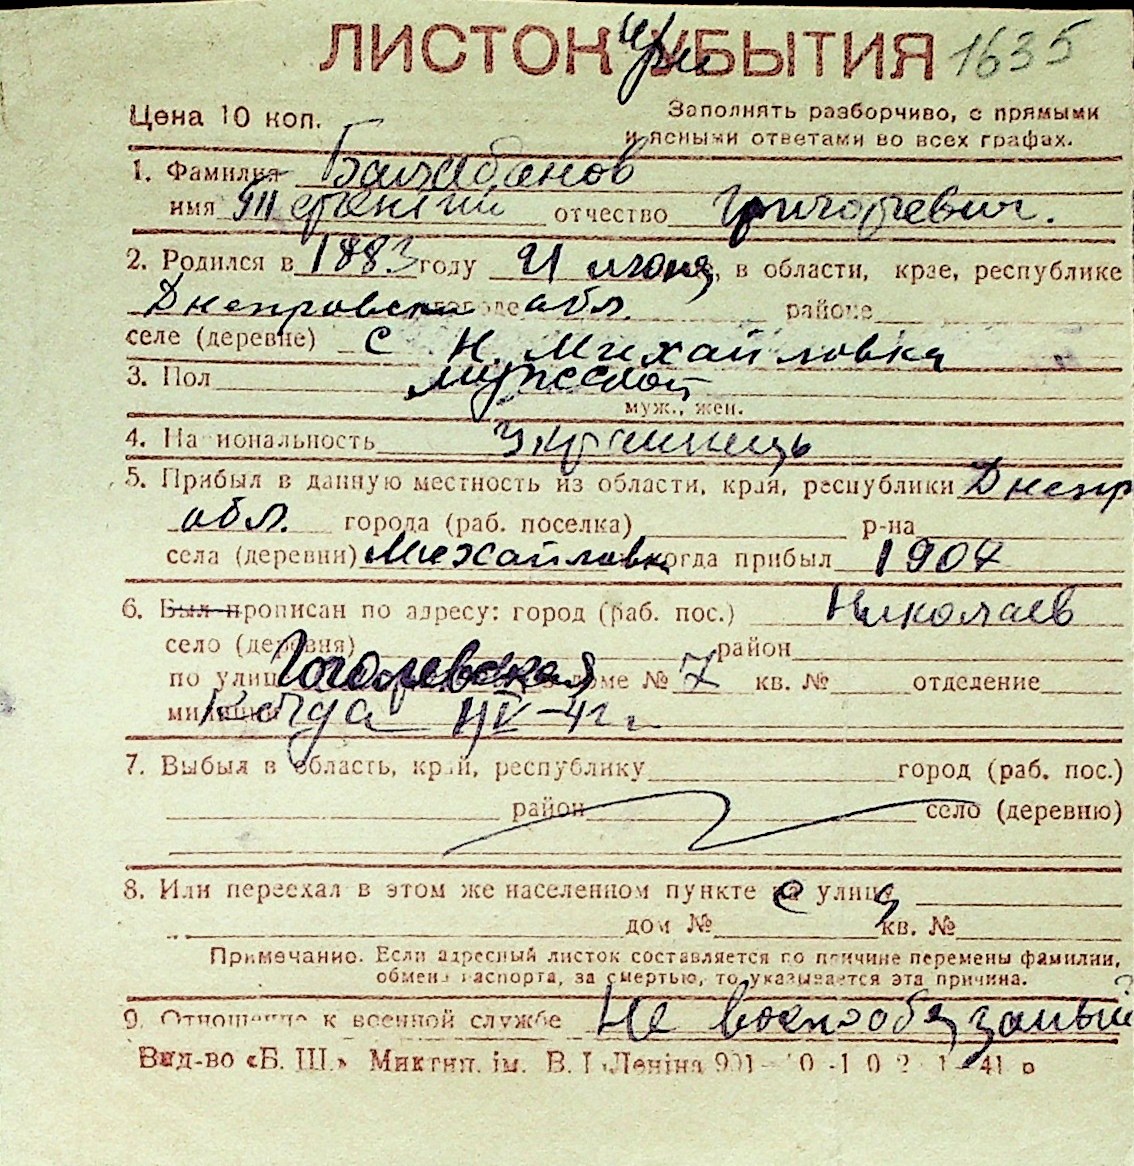 ЛИСТОК при УБЫТИЯ 1635
Цена 10 коп.
Заполнять разборчиво, с прямыми
и ясными ответами во всех графах.
1. Фамилия Балабанов
имя Терентий отчество Григорьевич.
2. Родился в 1883 году 21 июня, в области, крае, республике
Днепровск городе обл. районе
селе (деревне) с Н. Михайловка
3. Пол мужской
муж., жен.
4. Национальность Украинець
5. Прибыл в данную местность из области, края, республики Днепр
обл. города (раб. поселка) р-на
села (деревни) Михайловка когда прибыл 1907
6. Был прописан по адресу: город (раб. пос.) Николаев
село (деревня) район
по улице Гоголевская в доме № 7 кв. № отделение
милиции Когда 1/IV-41 г.
7. Выбыл в область, край, республику город (раб. пос.)
район село (деревню)
8. Или переехал в этом же населенном пункте на с улицу
дом № кв. №
Примечание. Если адресный листок составляется по причине перемены фамилии,
обмена паспорта, за смертью, то указывается эта причина.
9. Отношение к военной службе Не военообязаный
Вид-во «Б. Ш.» Миктип. ім. В. І. Леніна